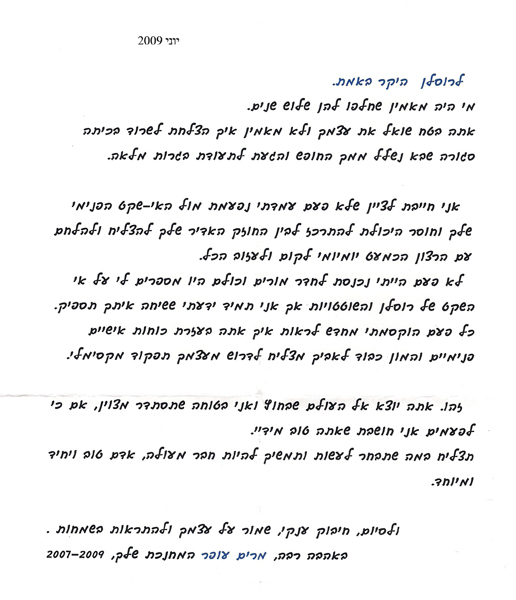 יוני 2009
לרוסלן היקר באמת.
מי היה מאמין שחלפו להן שלוש שנים.
אתה בטח שואל את עצמך ולא מאמין איך הצלחת לשרוד בכיתה
סגורה שבא נשלל ממך החופש והגעת לתעודת בגרות מלאה.
אני חייבת לציין שלא פעם עמדתי נפעמת מול האי-שקט הפנימי
שלך וחוסר היכולת להתרכז לבין החוזק האדיר שלך להצליח ולהלחם
עם הרצון הכמעט יומיומי לקום ולעזוב הכל.
לא פעם הייתי נכנסת לחדר מורים וכולם היו מספרים לי על אי
השקט של רוסלן והשוטטויות אך אני תמיד ידעתי ששיחה איתך תספיק.
כל פעם הוקסמתי מחדש לראות איך אתה בעזרת כוחות אישיים
פנימיים והמון כבוד לאביך מצליח לדרוש מעצמך תפקוד מקסימלי.
זהו. אתה יוצא אל העולם שבחוץ ואני בטוחה שתסתדר מצוין, אם כי
לפעמים אני חושבת שאתה טוב מידיי.
תצליח במה שתבחר לעשות ותמשיך להיות חבר מעולה, אדם טוב ויחיד
ומיוחד.
ולסיום, חיבוק ענקי, שמור על עצמך ולהתראות בשמחות .
באהבה רבה, מרים עופר המחנכת שלך, 2007-2009